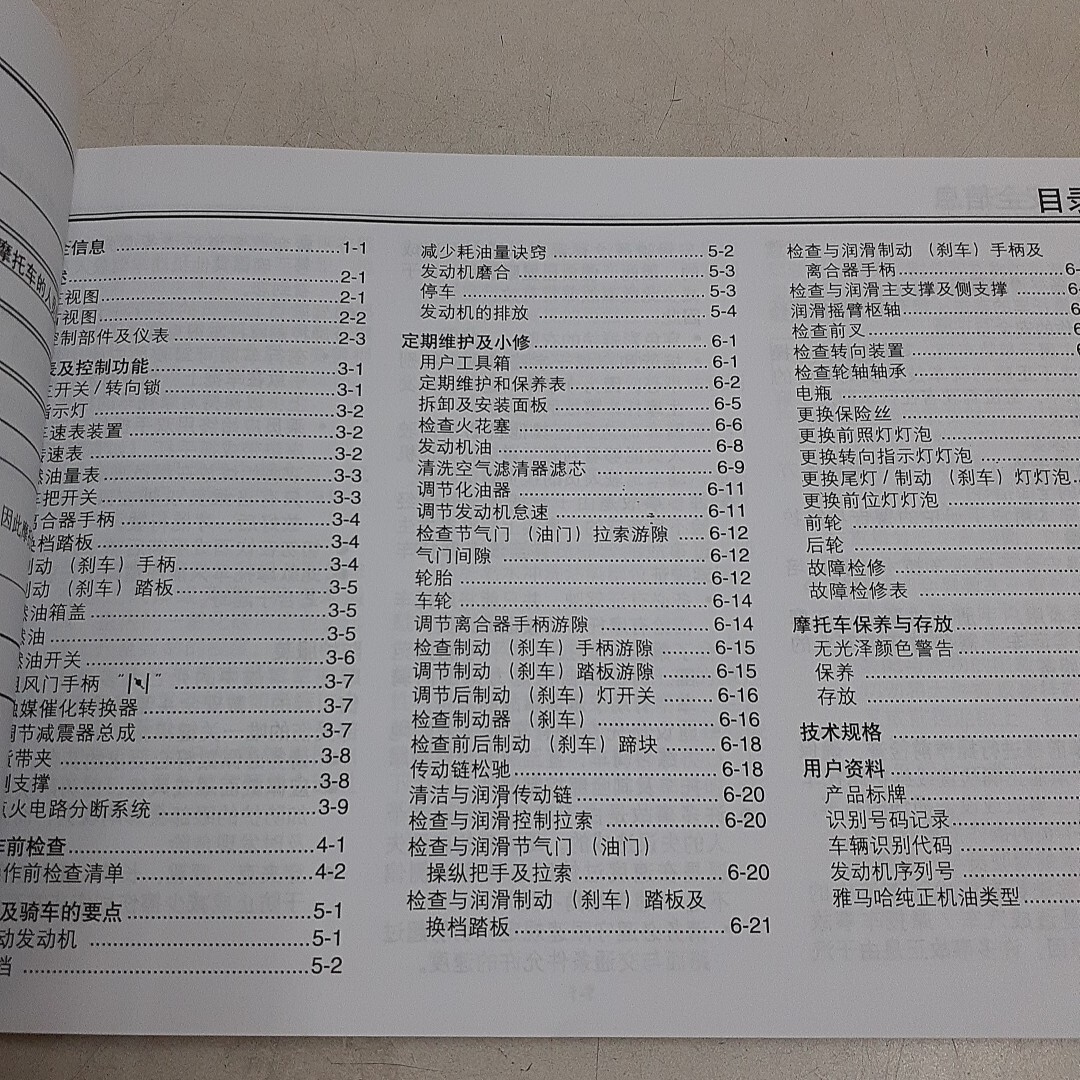 目录
信息 1-1
2-1
视图 2-1
视图 2-2
控制部件及仪表 2-3
表及控制功能 3-1
主开关 / 转向锁 3-1
指示灯 3-2
速表装置 3-2
速表 3-2
油量表 3-3
把开关 3-3
离合器手柄 3-4
换档踏板 3-4
制动 （刹车）手柄 3-4
制动 （刹车）踏板 3-5
燃油箱盖 3-5
燃油 3-5
燃油开关 3-6
阻风门手柄 “|↖|” 3-7
触媒催化转换器 3-7
调节减震器总成 3-7
货带夹 3-8
侧支撑 3-8
点火电路分断系统 3-9
作前检查 4-1
操作前检查清单 4-2
及骑车的要点 5-1
动发动机 5-1
档 5-2
减少耗油量诀窍 5-2
发动机磨合 5-3
停车 5-3
发动机的排放 5-4
定期维护及小修 6-1
用户工具箱 6-1
定期维护和保养表 6-2
拆卸及安装面板 6-5
检查火花塞 6-6
发动机油 6-8
清洗空气滤清器滤芯 6-9
调节化油器 6-11
调节发动机怠速 6-11
检查节气门 （油门）拉索游隙 6-12
气门间隙 6-12
轮胎 6-12
车轮 6-14
调节离合器手柄游隙 6-14
检查制动 （刹车）手柄游隙 6-15
调节制动 （刹车）踏板游隙 6-15
调节后制动 （刹车）灯开关 6-16
检查制动器 （刹车） 6-16
检查前后制动 （刹车）蹄块 6-18
传动链松驰 6-18
清洁与润滑传动链 6-20
检查与润滑控制拉索 6-20
检查与润滑节气门 （油门）
操纵把手及拉索 6-20
检查与润滑制动 （刹车）踏板及
换档踏板 6-21
检查与润滑制动 （刹车）手柄及
离合器手柄
检查与润滑主支撑及侧支撑
润滑摇臂枢轴
检查前叉
检查转向装置
检查轮轴轴承
电瓶
更换保险丝
更换前照灯灯泡
更换转向指示灯灯泡
更换尾灯 / 制动 （刹车）灯灯泡
更换前位灯灯泡
前轮
后轮
故障检修
故障检修表
摩托车保养与存放
无光泽颜色警告
保养
存放
技术规格
用户资料
产品标牌
识别号码记录
车辆识别代码
发动机序列号
雅马哈纯正机油类型
摩托车的人
因此摩